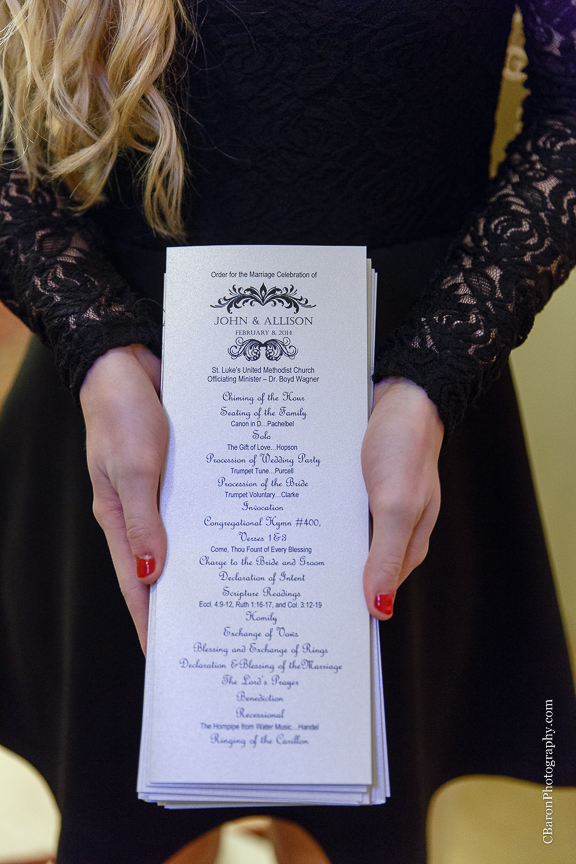 Order for the Marriage Celebration of
JOHN & ALLISON
FEBRUARY 8, 2014
St. Luke's United Methodist Church
Officiating Minister – Dr. Boyd Wagner
Chiming of the Hour
Seating of the Family
Canon in D...Pachelbel
Solo
The Gift of Love...Hopson
Procession of Wedding Party
Trumpet Tune...Purcell
Procession of the Bride
Trumpet Voluntary...Clarke
Invocation
Congregational Hymn #400,
Verses 1&3
Come, Thou Fount of Every Blessing
Charge to the Bride and Groom
Declaration of Intent
Scripture Readings
Eccl. 4:9-12, Ruth 1:16-17, and Col. 3:12-19
Homily
Exchange of Vows
Blessing and Exchange of Rings
Declaration & Blessing of the Marriage
The Lord's Prayer
Benediction
Recessional
The Hornpipe from Water Music...Handel
Ringing of the Carillon
CBaronPhotography.com